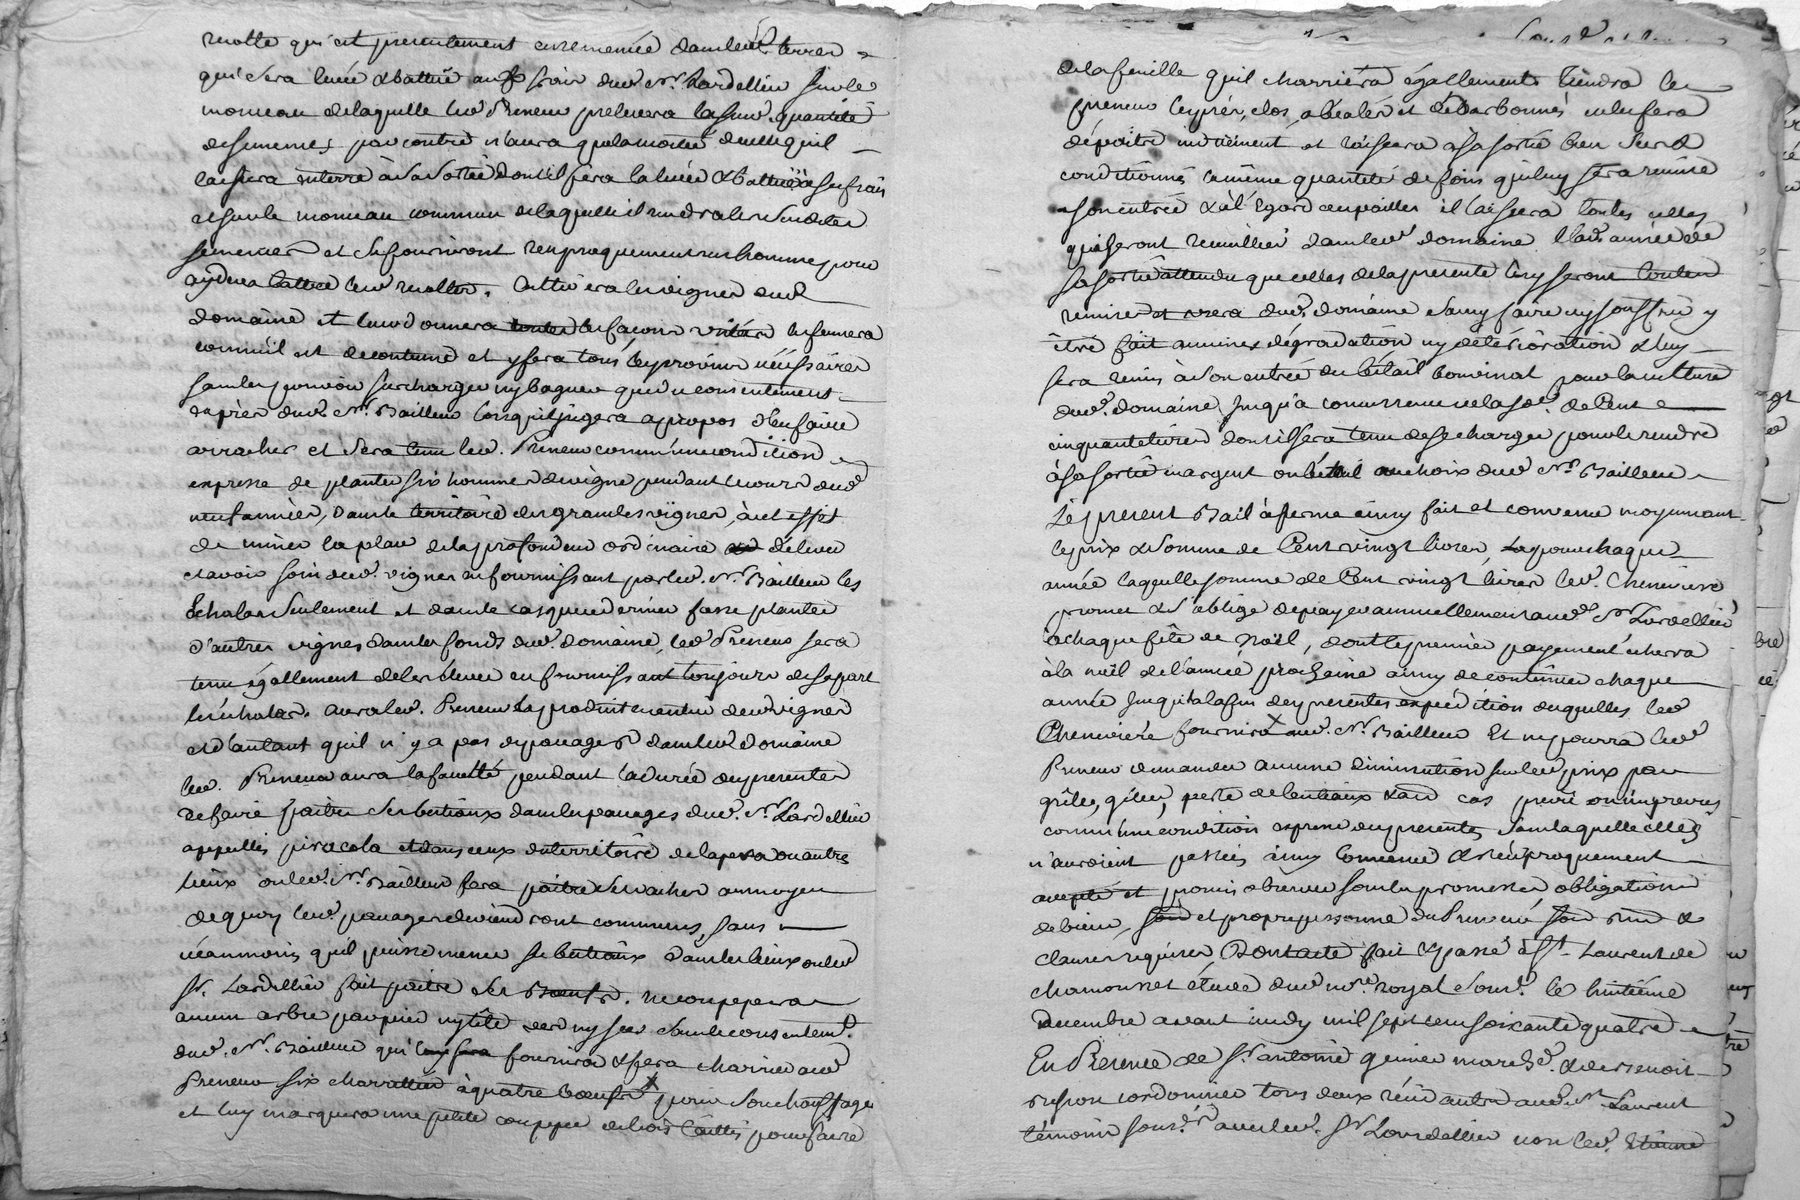 recolte qui est presentement ensemencée dans led. terres
qui sera levée & battue aux frais dud. Sr. Lardellier sur le
monceau de laquelle led. Preneur prelevera lad. quantité
de semences par contre n'aura que la moitié de celle qu'il
laissera en terre à sa sortie dont il fera la levée & battue à ses frais
et sur le monceau commun de laquelle il prendra
semences et se fourniront reciproquement un homme pour
ayder a battre led. recoltes. Cultivera les vignes dud.
domaine et leur donnera toutes les façons les fumera
comm'il est de coutume et y fera tous les provins nécéssaires
sans les pouvoir surcharger ny que du consentement
exprès dud. Sr. Bailleur lorsqu'il jugera apropos d'en faire
arracher et sera tenu led. Preneur comm'une condition
expresse de planter six hommes de vigne pendant le cours desd.
neuf années, dans le territoire des grandes vignes, à cet effet
de miner la place de la profondeur ordinaire d'élever
et avoir soin desd. vignes en fournissant par led. Sr. Bailleur les
Echalas seulement et dans le cas que ce dernier fasse planter
d'autres vignes dans les fonds dud. domaine, led. Preneur sera
tenu également de les élever en fournissant toujours de sa part
les échalas. aura led. Preneur le produit entier desd. vignes
et d'autant qu'il n'y a pas de pacages dans led. domaine
led. Preneur aura la faculté pendant la durée des presentes
de faire paitre ses bestiaux dans les pacages dud. Sr. Lardellier
appellés et dans ceux du territoire de ou autres
lieux ou led. Sr. Bailleur fera paitre ses vaches au moyen
de quoy led. pacages deviendront communs, sans
néanmoins qu'il puisse mener ses bestiaux dans les lieux ou led.
Sr. Lardellier fait paitre ses Boeufs. ne coupera
aucun arbre par pied ny tête verd ny sec sans le consentemt.
dud. Sr. Bailleur qui fournira & fera charrier aud.
Preneur six charretées à quatre boeufs pour son chauffage
et luy marquera une petite couppée de bois taillis pour faire
de la feuille qu'il charriera égallement tiendra le
preneur les prés, clos, et ne les fera
dépaitre indüement et laissera à sa sortie bien serré &
conditionné la même quantité de foins qui luy sera remise
a son entrée & à l'égard des pailles il laissera toutes celles
qui seront recueillies dans led. domaine l'année de
sa sortie attendu que celles de la presente luy seront toutes
remises et usera dud. domaine sans y faire ny souffrir y
être fait aucunes dégradation ny détérioration & luy
sera remis à son entrée du bétail bouvinal pour la culture
dud. domaine jusqu'à concurrence de la so.e de Cent
cinquante livres dont il sera tenu de se charger pour le rendre
à sa sortie en argent ou bétail au choix dud. Sr. Bailleur
Le present Bail à ferme ainsy fait et convenu moyennant
le prix & somme de Cent vingt livres pour chaque
année laquelle somme de Cent vingt livres led. Cheneviere
promet & s'oblige de payer annuellement aud. Sr. Lardellier
à chaque fête de Noël, dont le premier payement echerra
à la noël de l'année prochaine ainsy de continuer chaque
année jusqu'à la fin des presentes expédition desquelles led.
Cheneviere fournira aud. Sr. Bailleur Et ne pourra led.
Preneur demander aucune diminution sur led. prix par
grêle, gêlée, perte de bestiaux & autre cas prévû ou imprevus
comm'une condition expresse des presentes sans laquelle elles
n'auroient passées ainsy convenu & réciproquement
accepté et promis observer sous les promesses obligations
de biens, et propre personne du Preneur &
clauses requises, Dont acte fait & passé à St. Laurent de
chamousset étude dud. nore. royal sousé. le huitième
decembre avant midy mil sept cens soixante quatre
En Presence de Sr. antoine marchd. & de Benoit
cordonnier tous deux résidants aud. St. Laurent
témoins sous.és avec led. Sr. Lardellier non led. Etienne